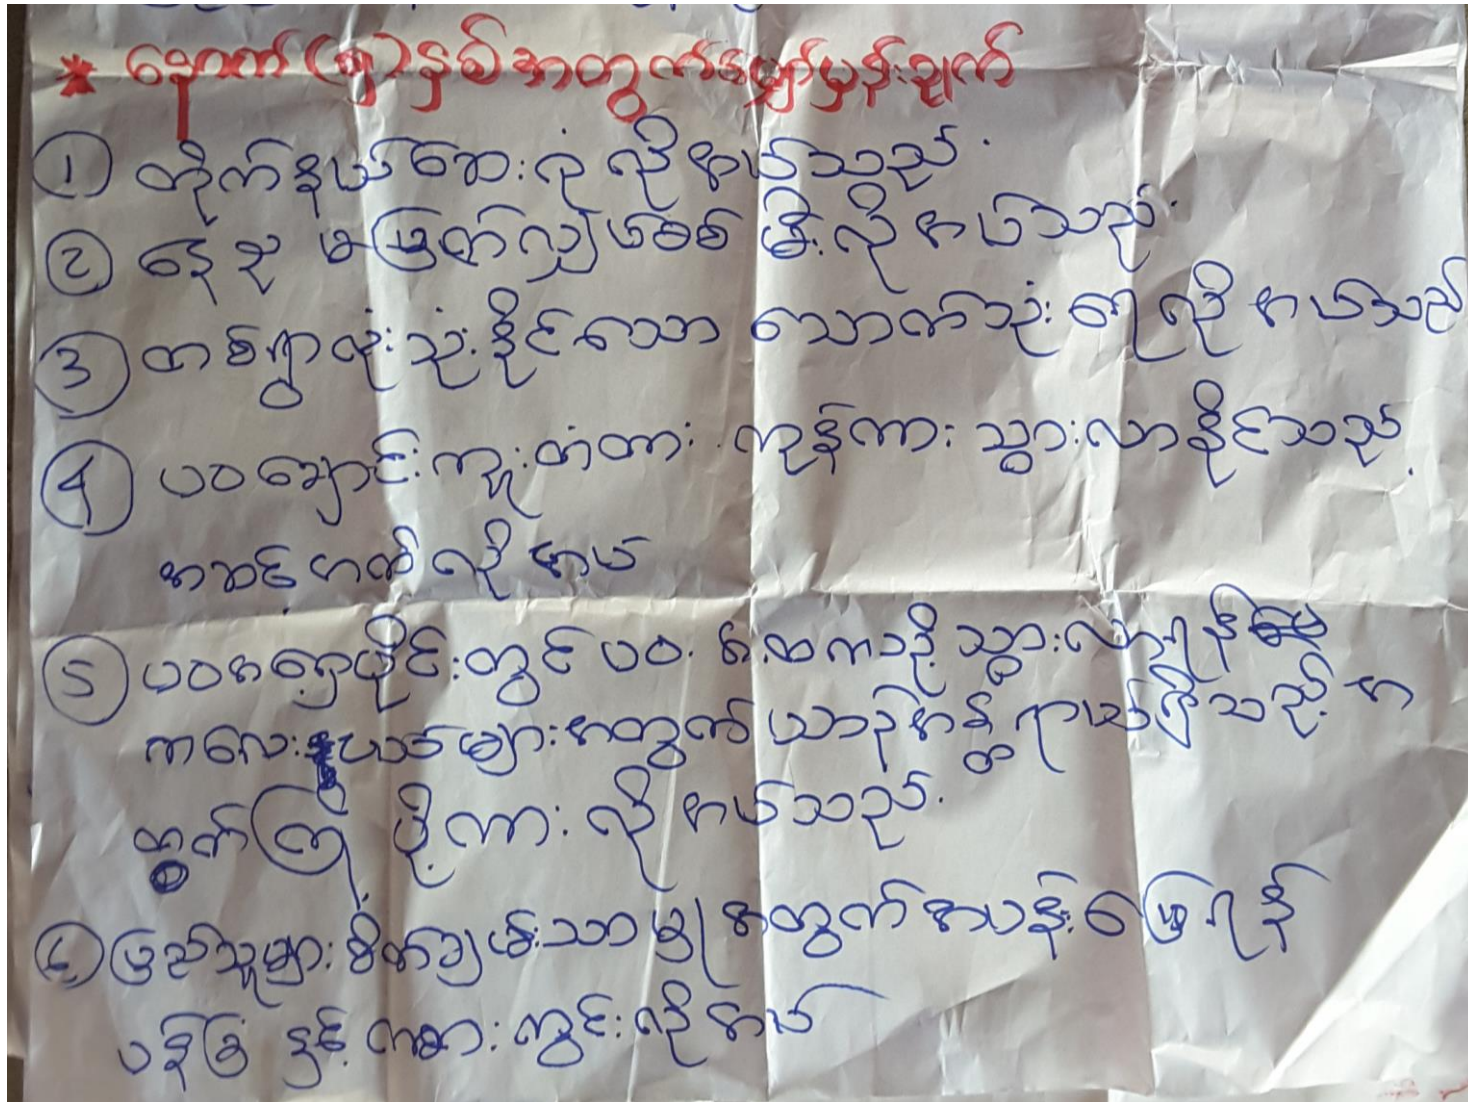 * နောက်(၅)နှစ်အတွက်မျှော်မှန်းချက်
① တိုက်နယ်ဆေးရုံ လိုအပ်သည်.
② နေ့ည မပြတ်လျှပ်စစ် မီးလိုအပ်သည်.
③ တစ်ရွာလုံးသုံးနိုင်သော သောက်သုံးရေလိုအပ်သည်
④ ပဝချောင်းကူးတံတား ကုန်ကား သွားလာနိုင်သည့်
အဆင့်ထက်လိုအပ်
⑤ ပဝအရှေ့ပိုင်းတွင် ပဝ သွားလာရန်
ကလေးငယ်များအတွက်ယာဉ်အန္တရာယ်ရှိသည့် အ
တွက်ကြို ပို့ကား လိုအပ်သည်.
⑥ ပြည်သူများစိတ်ချမ်းသာမှုအတွက်အပန်းဖြေရန်
ပန်းခြံ နှင့် ကစားကွင်းလိုအပ်